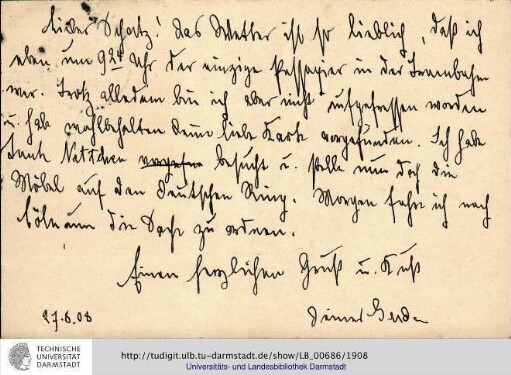 Lieber Schatz! Das Wetter ist so lieblich, daß ich
eben um 9 Uhr der einzige Passagier in der Trambahn
war. Trotz alledem bin ich aber nicht aufgefressen worden
u. habe wohlbehalten deine liebe Karte vorgefunden. Ich habe
Tante Nettchen besucht u. stelle nun doch die
Möbel auf den deutschen Ring. Morgen fahre ich nach
die Sache zu ordnen.
Einen herzlichen Gruß u. Kuß
27.6.08
TECHNISCHE
UNIVERSITÄT
DARMSTADT
http://tudigit.ulb.tu-darmstadt.de/show/LB_00686/1908
Universitäts- und Landesbibliothek Darmstadt